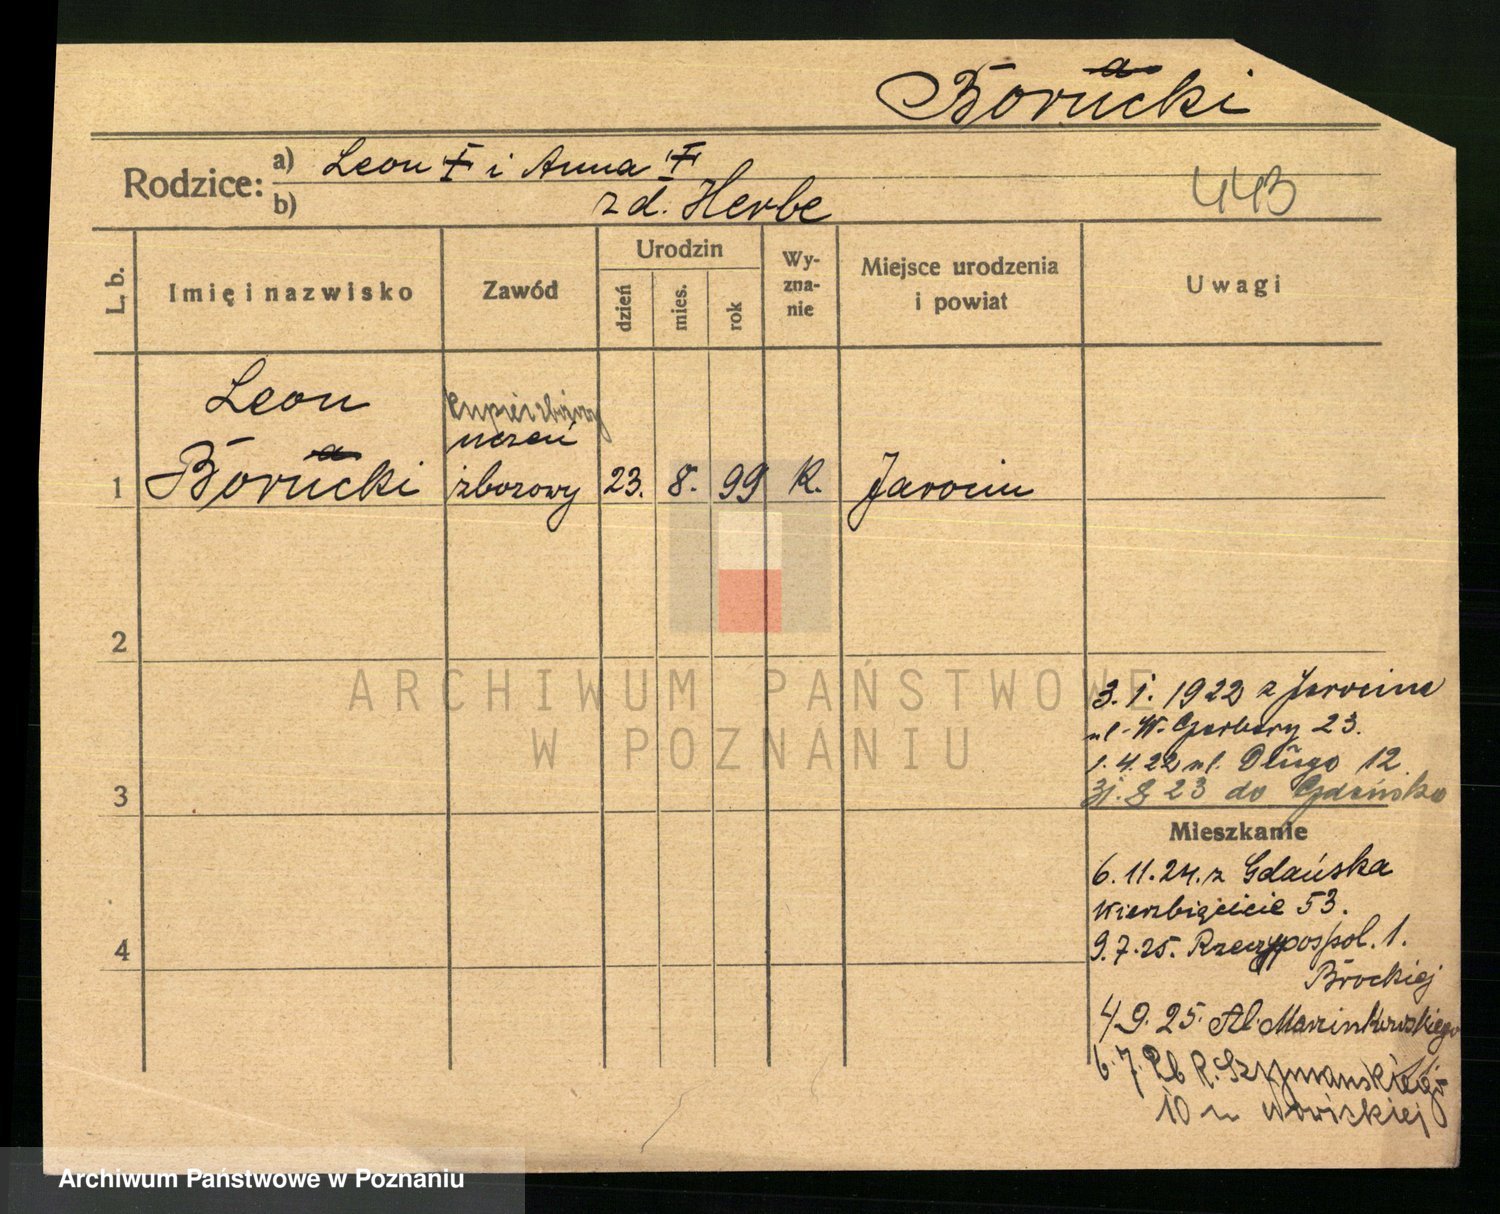 Borucki
Rodzice: a) Leon † i Anna †
b) zd. Herbe
443
L. b.
Imię i nazwisko
Zawód
Urodzin
dzień
mies.
rok
Wy-
zna-
nie
Miejsce urodzenia
i powiat
Uwagi
Leon
kupiec zbożowy
uczeń
1 Borucki zbozowy 23. 8. 99 K. Jarocin
2
3. 1. 1922 z Jarocina
ul. W. Garbary 23.
1.4.22 ul. Długa 12
3
23 do Gdańska
Mieszkanie
6.11.24. z Gdańska
Wierzbięcicie 53.
4
9.7.25. Rzeczypospol. 1.
Brockiej
4 9. 25. Al. Marcinkowskiego
6. 7. R. Szymanskiego
10 u
ARCHIWUM PAŃSTWOWE
W POZNANIU
Archiwum Państwowe w Poznaniu